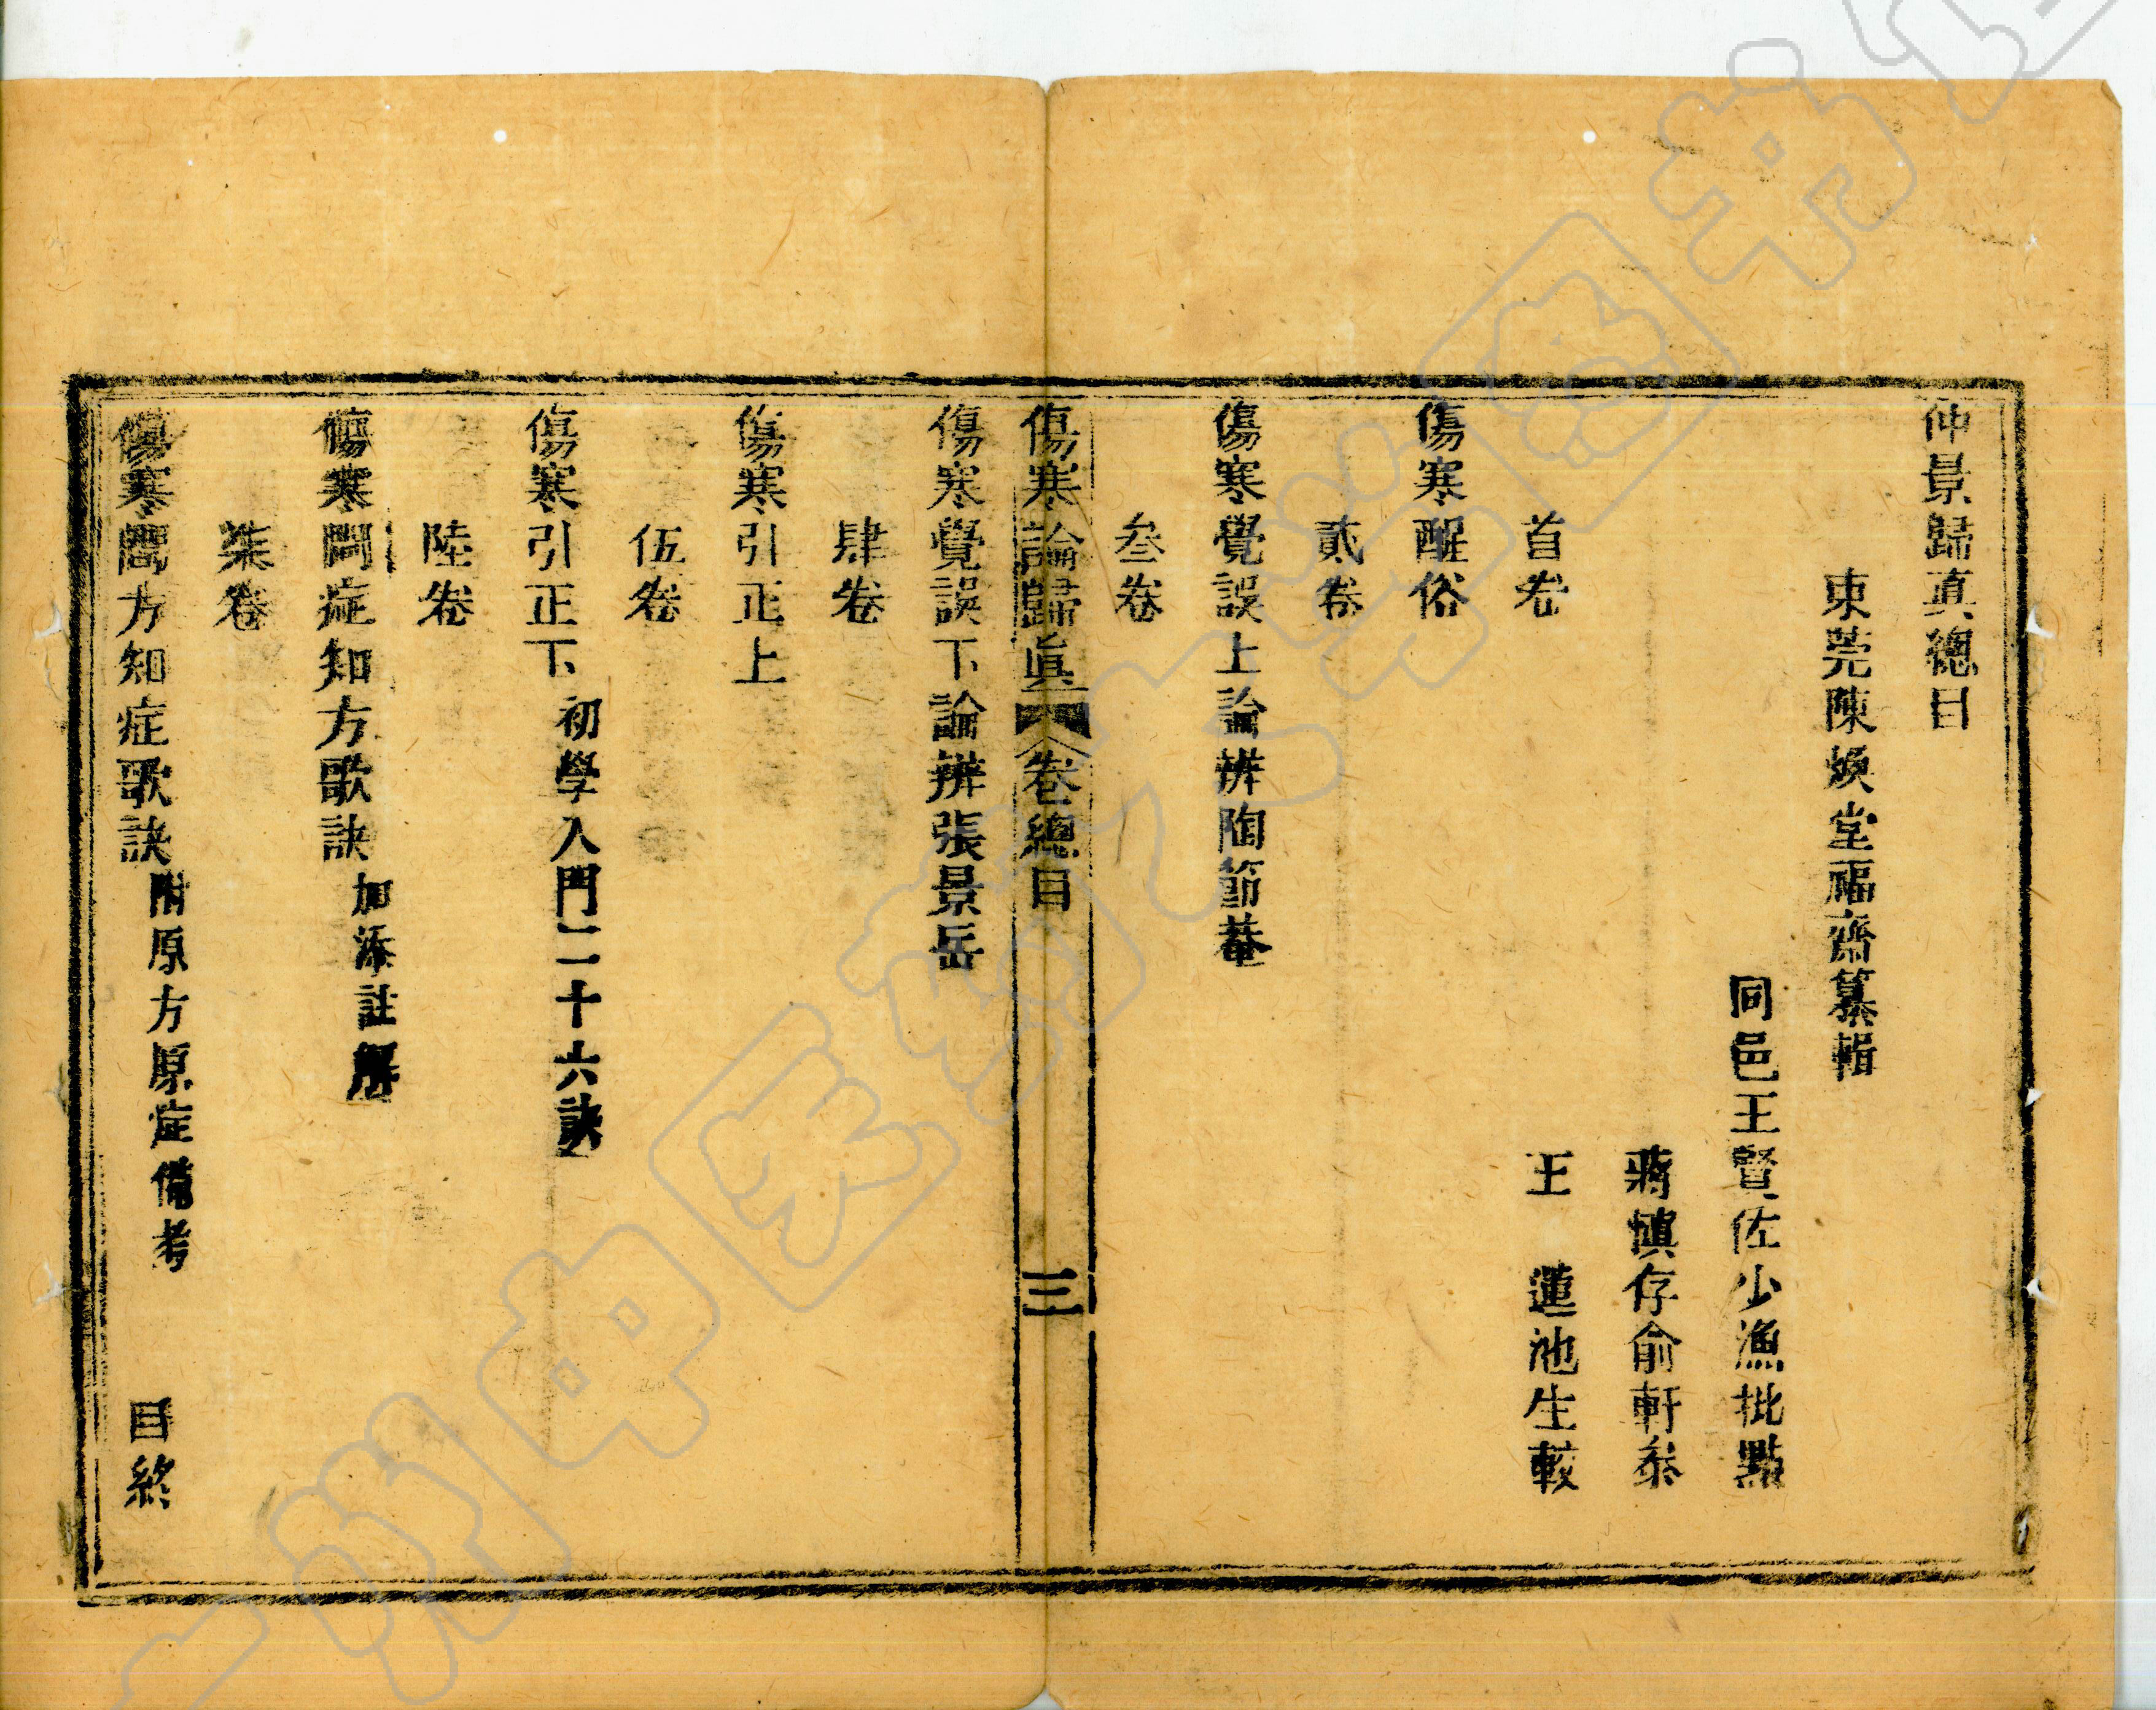 仲景歸真總目
東莞陳煥堂福齋纂輯
同邑王賢佐少漁批點
蔣慎存俞軒叅
王　蓮池生較
首卷
傷寒醒俗
貳卷
傷寒覺誤上論辨陶節菴
叁卷
傷寒論歸眞　卷總目　三
傷寒覺誤下論辨張景岳
肆卷
傷寒引正上
伍卷
傷寒引正下　初學入門二十六訣
陸卷
傷寒問症知方歌訣　加添註解
柒卷
傷寒問方知症歌訣　附原方原症備考　目終